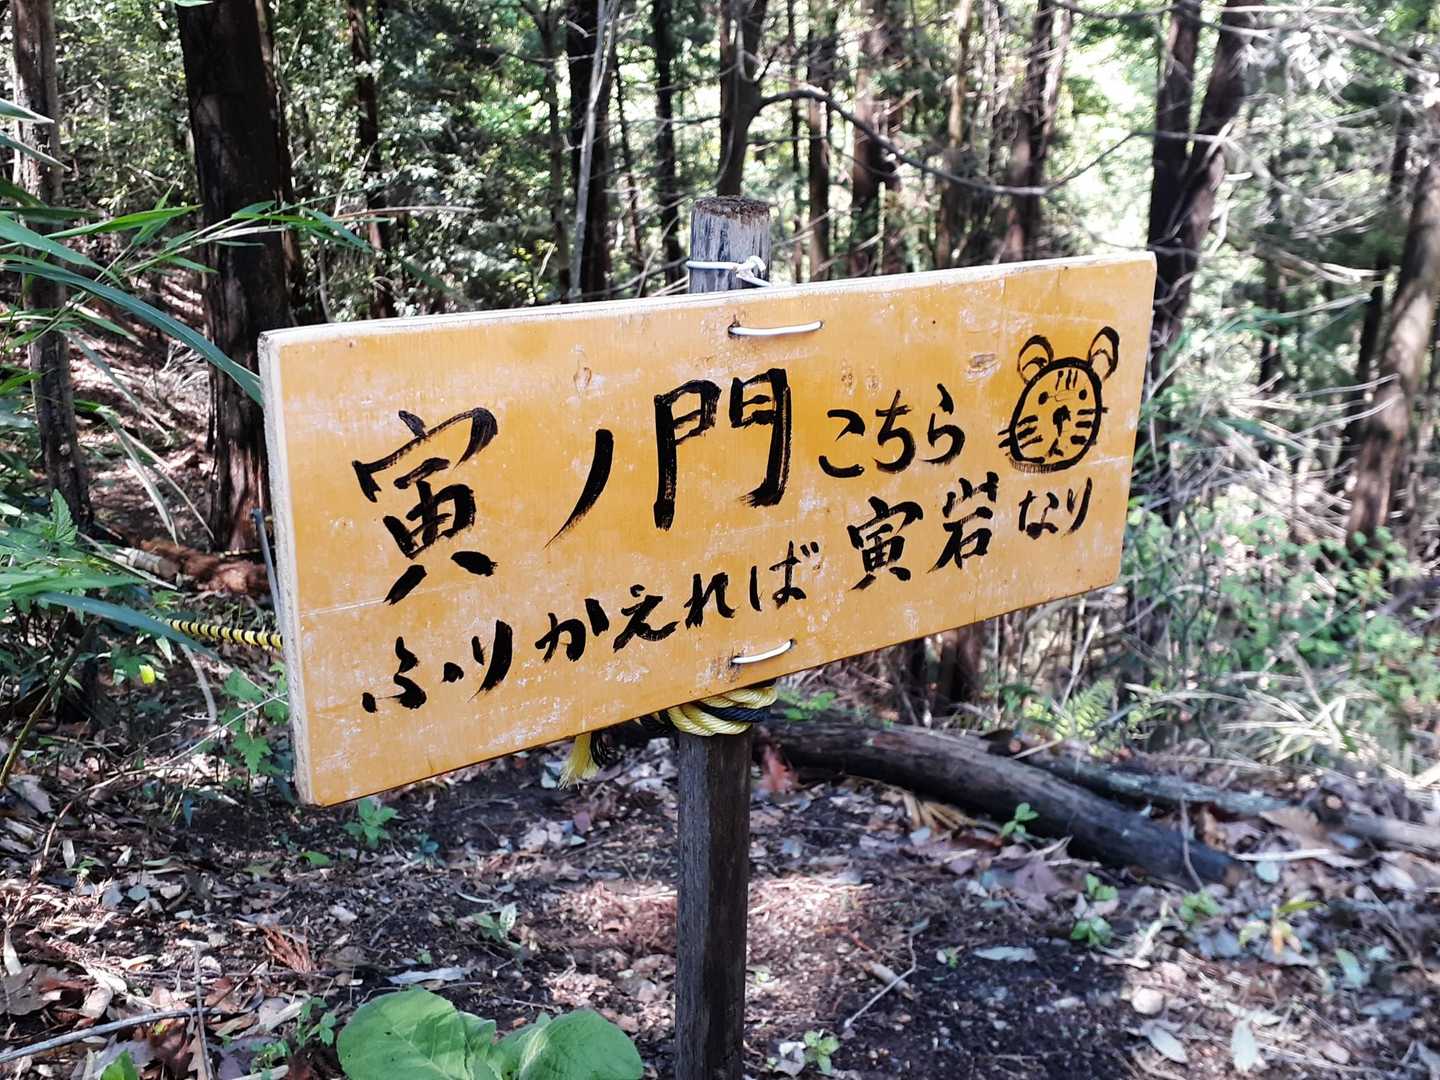 寅ノ門こちら
ふりかえれば寅岩なり